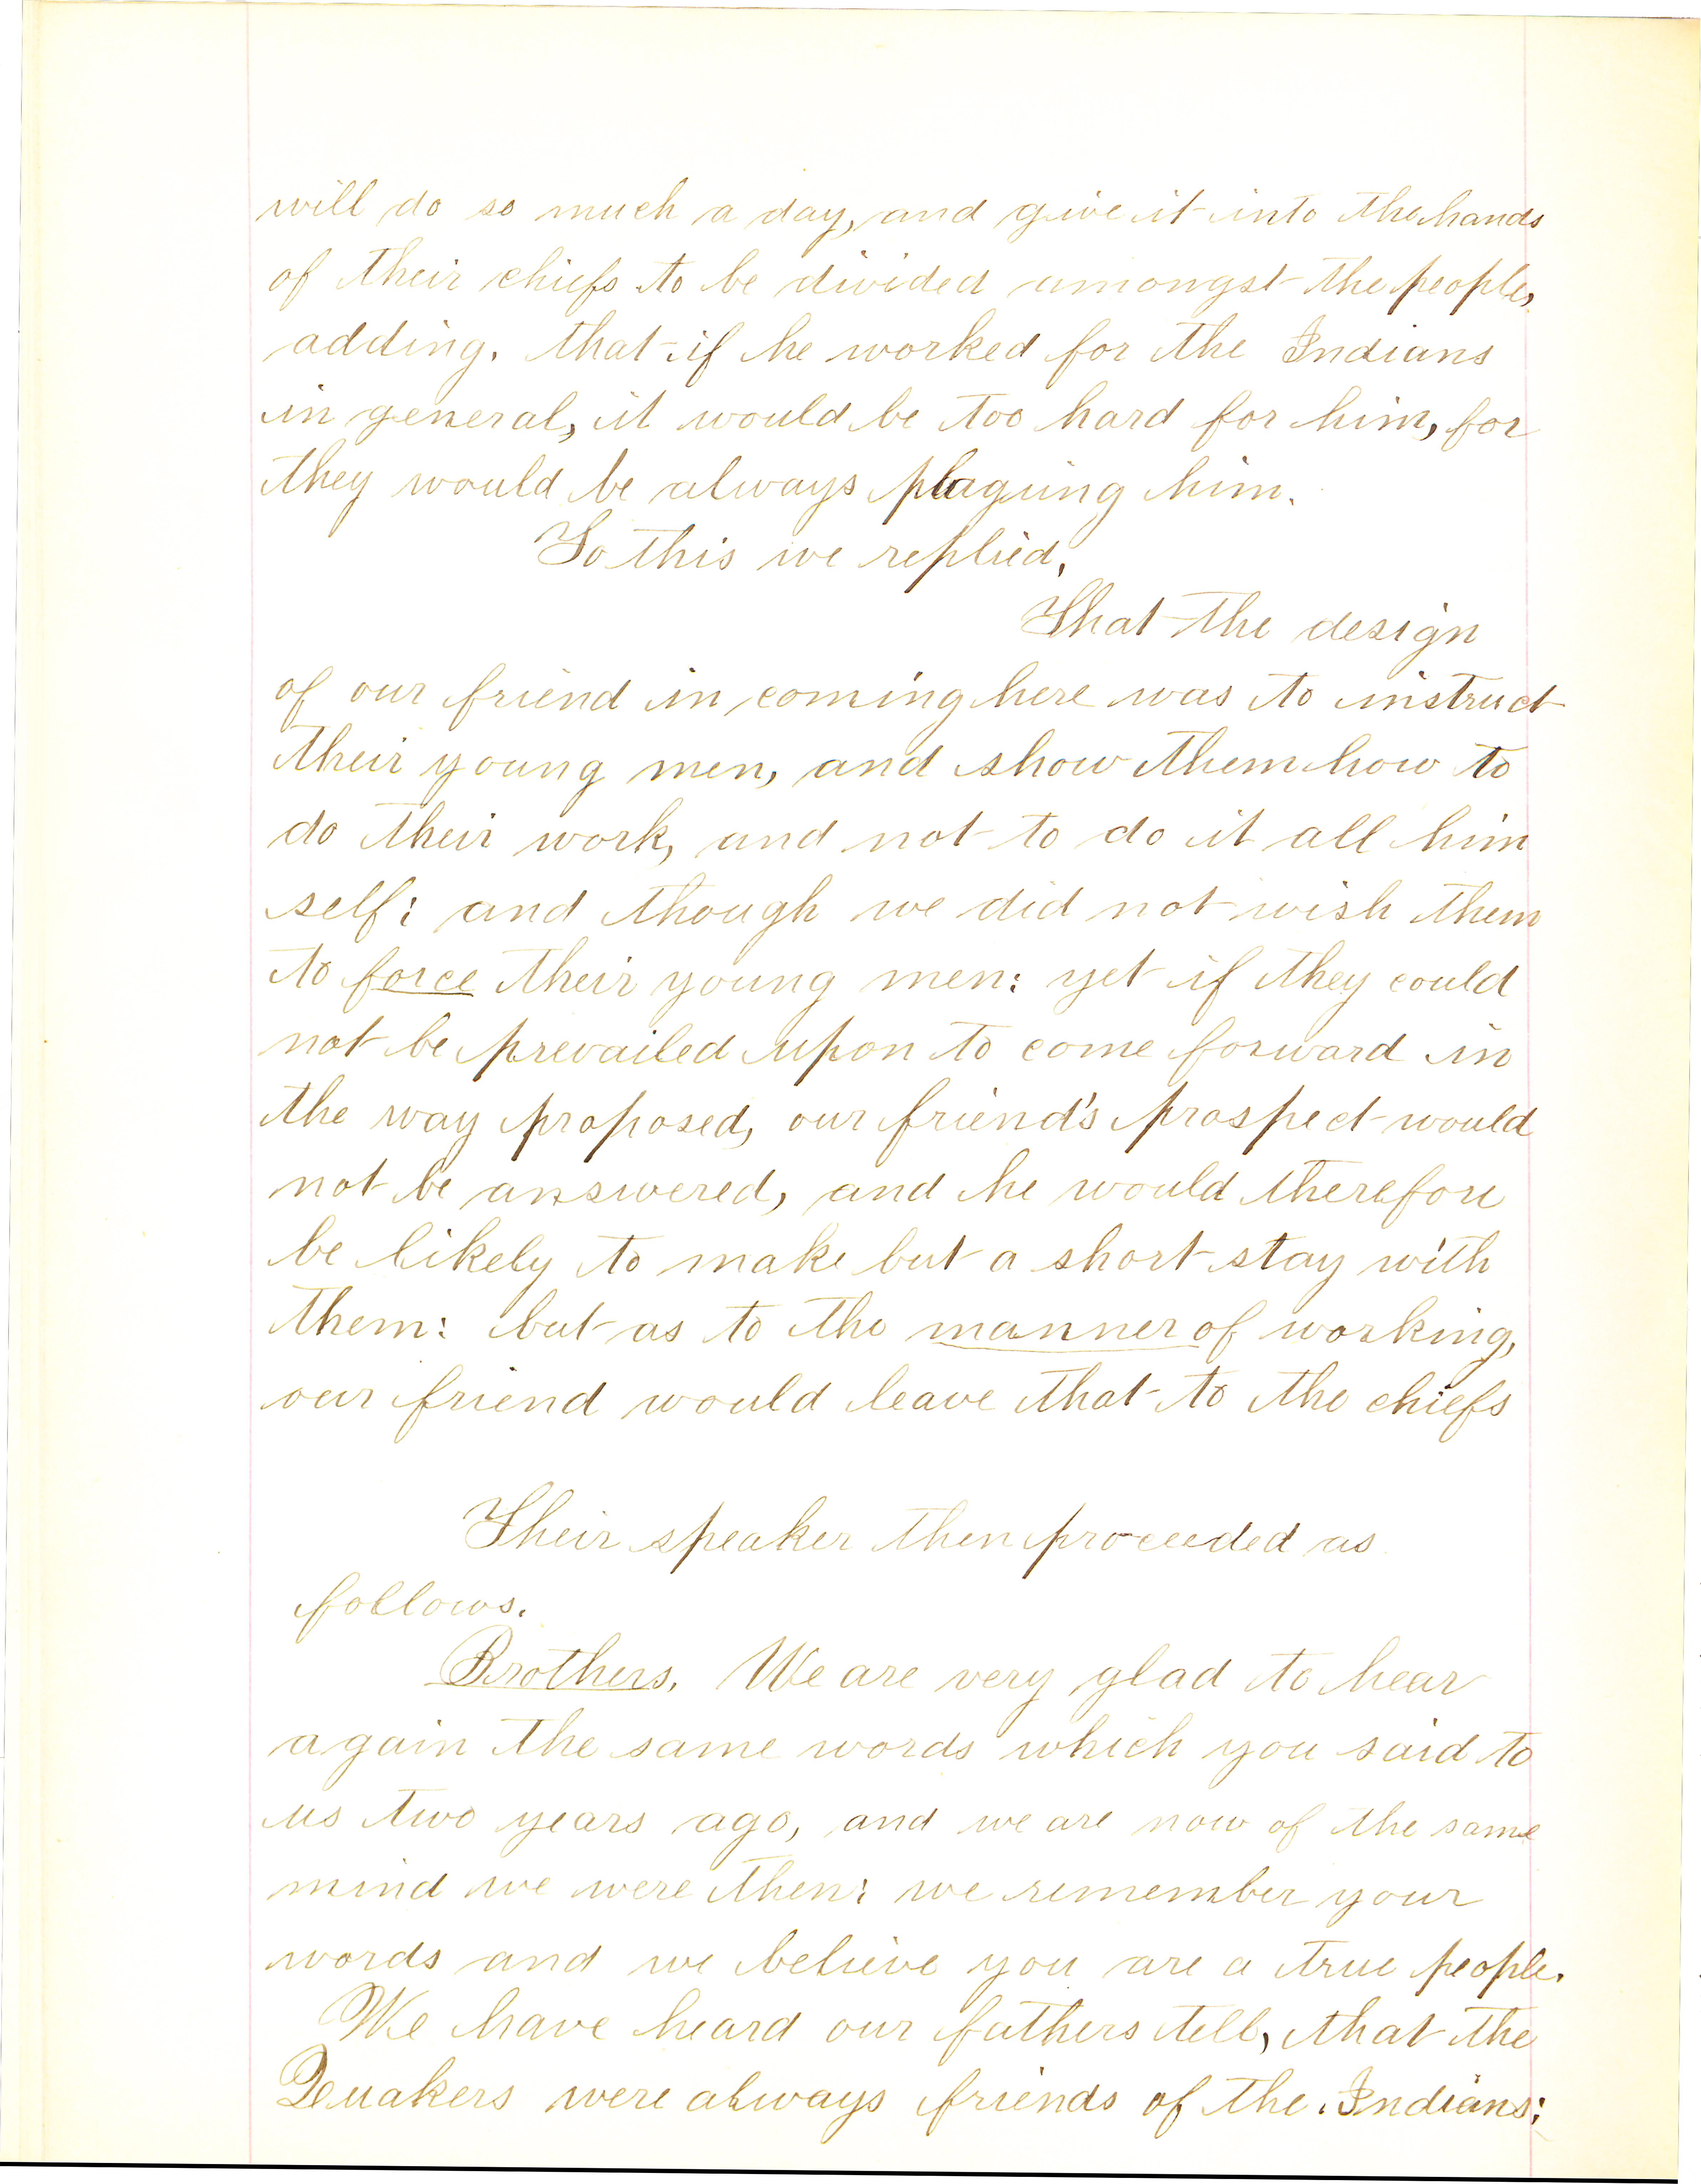 will do so much a day, and give it into the hands
of their chiefs to be divided amongst the people,
adding, that if he worked for the Indians
in general, it would be too hard for him, for
they would be always plaguing him.
To this we replied,
That the design
of our friend in coming here was to instruct
their young men, and show them how to
do their work, and not to do it all him
self; and though we did not wish them
to force their young men: yet if they could
not be prevailed upon to come forward in
the way proposed, our friend's prospect would
not be answered, and he would therefore
be likely to make but a short stay with
them: but as to the manner of working,
our friend would leave that to the chiefs
Their speaker then proceeded as
follows.
Brothers, We are very glad to hear
again the same words which you said to
us two years ago, and we are now of the same
mind we were then; we remember your
words and we believe you are a true people.
We have heard our fathers tell, that the
Quakers were always friends of the Indians;